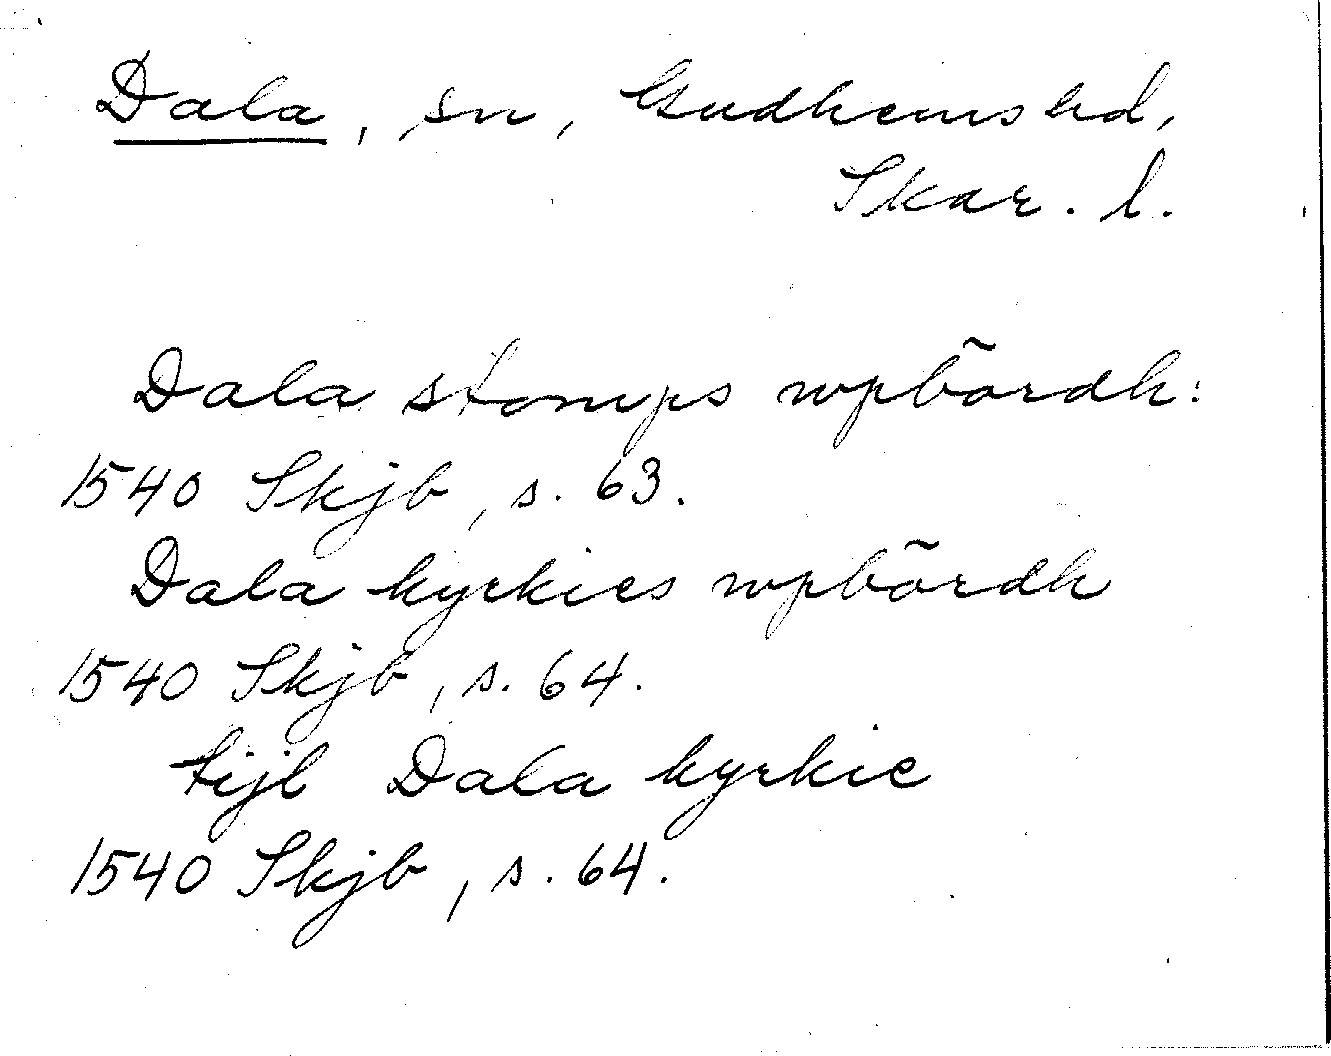 Dala, sn, Gudhems hd,
Skar. l.
Dala stomps wpbõrdh:
1540 Skjb, s. 63.
Dala kyrkies wpbõrdh
1540 Skjb, s. 64.
tijl Dala kyrkie
1540 Skjb, s. 64.